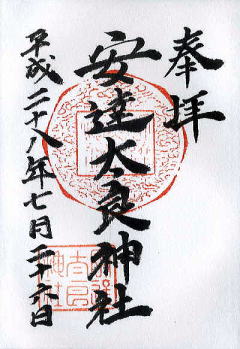 奉拝
安達太良神社
平成二十八年七月二十六日